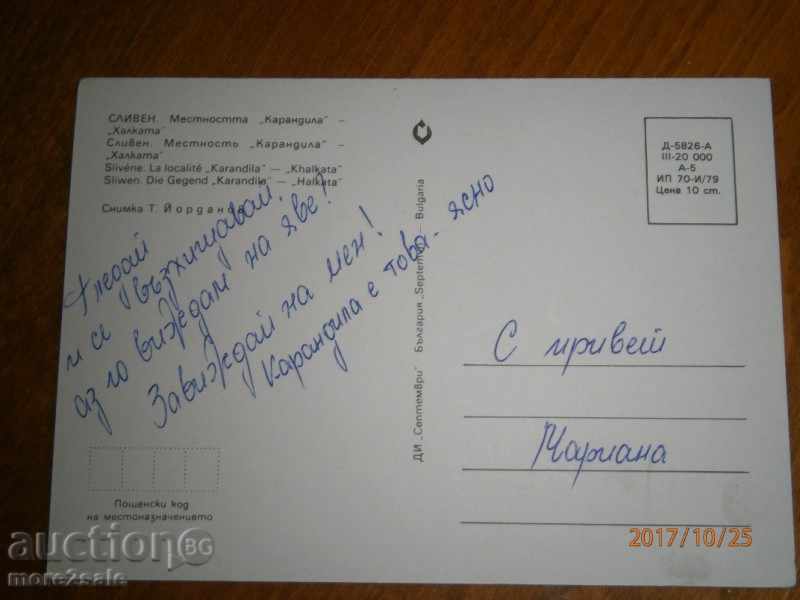 СЛИВЕН. Местността „Карандила" –
„Халката"
Сливен. Местность „Карандила" –
„Халката"
Slivène: La localité „Karandila" – „Khalkata"
Sliwen: Die Gegend „Karandila" – „Halkata"
Снимка Т. Йордан
Гледай
и се възхищавай!
аз го виждам на яве!
Завиждай на мен!
Карандила е това - ясно
?
Пощенски код
на местоназначението
ДИ „Септември" България „Septemvri" Bulgaria
Д-5826-А
III-20 000
А-5
ИП 70-И/79
Цена 10 ст.
С привет
Мариана
2017/10/25
auction BG
more2sale